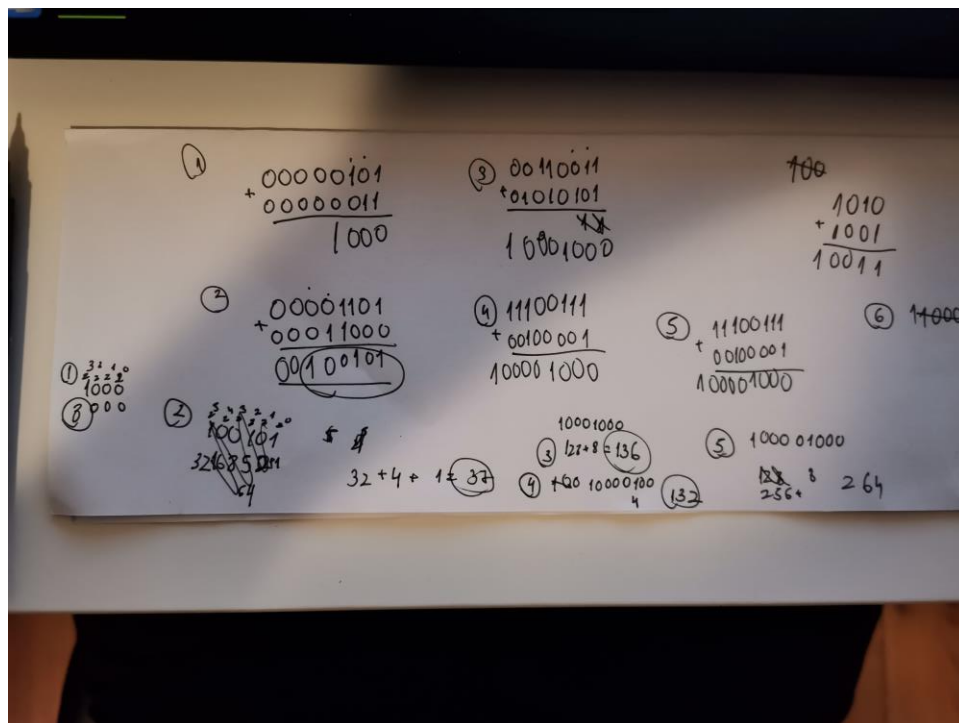 ①
00000101
+ 00000011
1000
③ 00110011
+ 01010101
10001000
100
1010
+ 1001
10011
②
00001101
+ 00011000
00100101
④ 11100111
+ 00100001
100001000
⑤ 11100111
+ 00100001
100001000
⑥ 11000
① 3 2 1 0
2 2 2 2
1000
⑧ 000
②
100101
32 + 4 + 1 = 37
10001000
③ 128 + 8 = 136
④ 100 10000100
4
132
⑤ 100001000
128
256 + 8 264